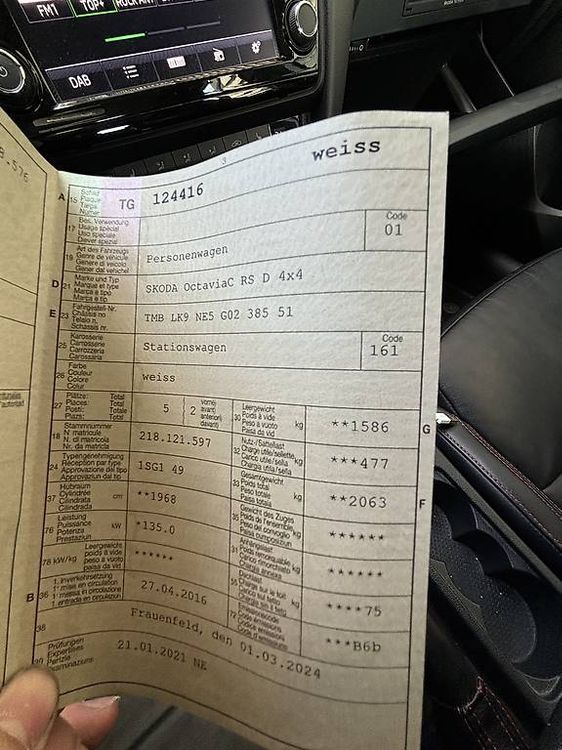 FM1 TOP+ ROCK ANT
DAB
B-576
3
weiss
A 15 Schild Plaque Targa Numer TG 124416
17 Bes. Verwendung Usage spécial Uso speciale Diever spezial Code 01
19 Art des Fahrzeugs Genre de véhicule Genere di veicolo Gener dal vehichel Personenwagen
D 21 Marke und Typ Marque et type Marca e tipo Marca e tip SKODA OctaviaC RS D 4x4
E 23 Fahrgestell-Nr. Châssis no Telaio n. Schassis nr. TMB LK9 NE5 G02 385 51
25 Karosserie Carrosserie Carrozzeria Carossaria Stationswagen Code 161
26 Farbe Couleur Colore Colur weiss
27 Plätze: Total Places: Total Posti: Totale Plazs: Total 5 2 vorne) avant) anteriori) davant) 30 Leergewicht Poids à vide Peso a vuoto Paisa da vid kg **1586 G
18 Stammnummer N° matricule N. di matricola Nr. da matricla 218.121.597 32 Nutz-/Sattellast Charge utile/sellette Carico utile/sella Chargia utila/sella kg ***477
24 Typengenehmigung Réception par type Approvazione del tipo Approvaziun dal tip 1SG1 49 33 Gesamtgewicht Poids total Peso totale Paisa totala kg **2063 F
37 Hubraum Cylindrée Cilindrata Cilindrada cm³ **1968 35 Gewicht des Zuges Poids de l'ensemble Peso del convoglio Paisa cumposiziun kg ******
76 Leistung Puissance Potenza Prestaziun kW *135.0 31 Anhängelast Poids remorquable Carico rimorchiato Chargia annexa kg ******
78 kW/kg Leergewicht poids à vide peso a vuoto paisa da vid ****** 55 Dachlast Charge sur le toit Carico sul tetto Chargia sin il tetg kg ****75
B 36 1. Inverkehrsetzung 1re mise en circulation 1a messa in circolazione 1. entrada en circulaziun 27.04.2016 72 Emissionscode Code émissions Codice emissioni Code d'emissiuns ***B6b
38 Frauenfeld, den 01.03.2024
39 Prüfungen Expertises Perizie Examinaziuns 21.01.2021 NE